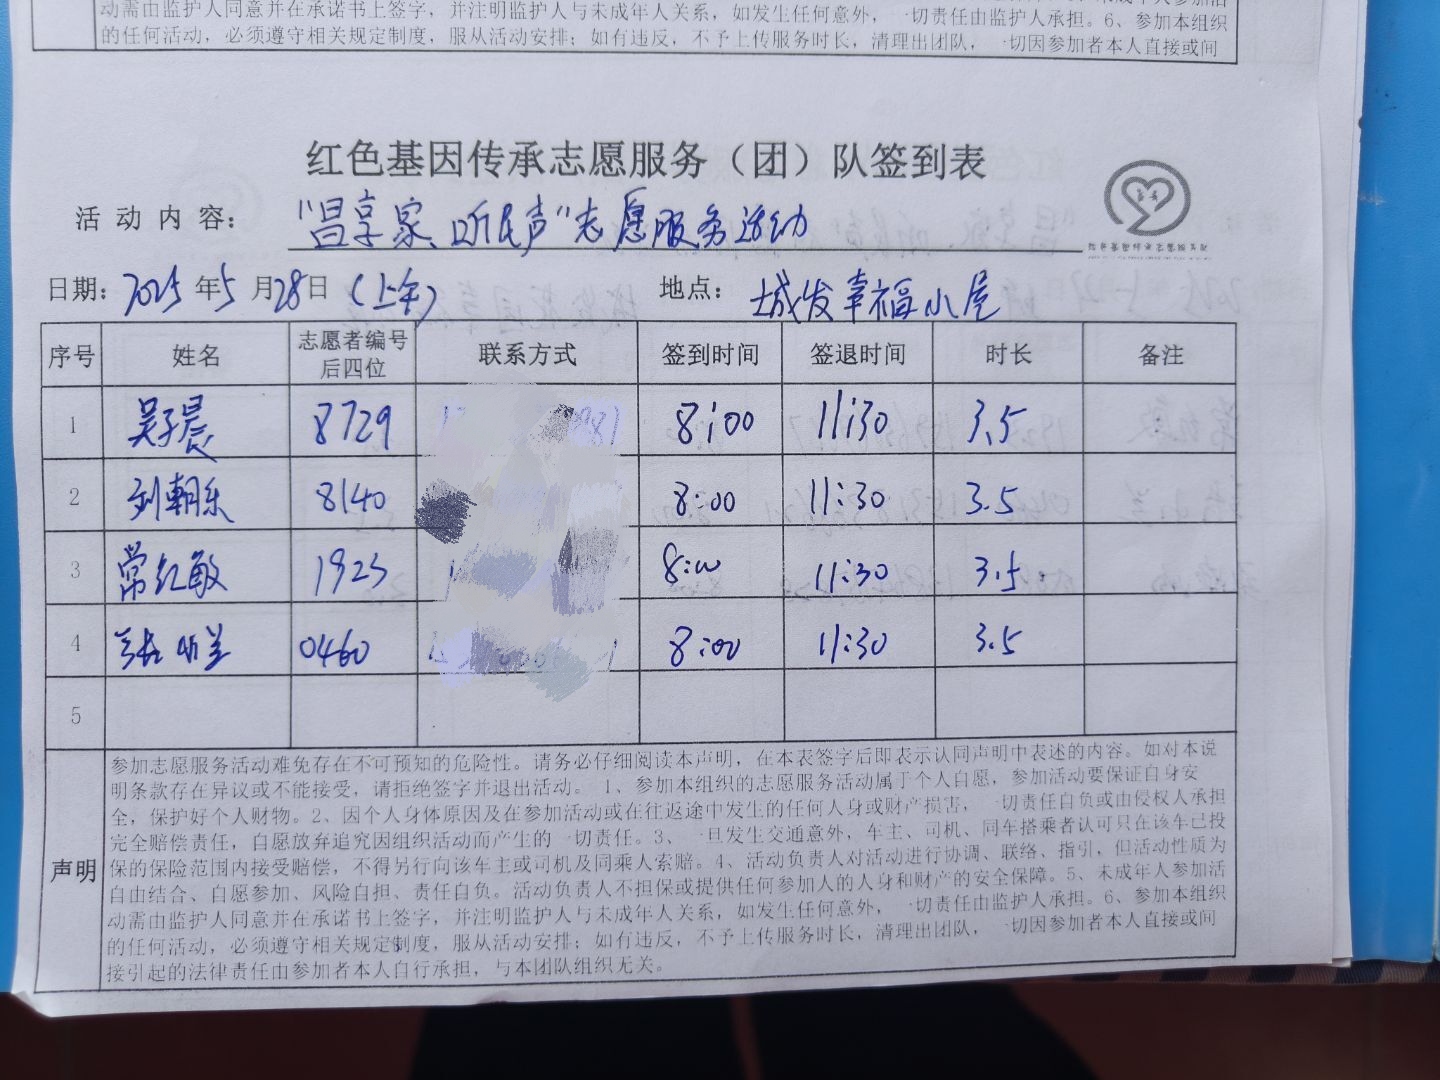 动需由监护人同意并在承诺书上签字，并注明监护人与未成年人关系，如发生任何意外，一切责任由监护人承担。6、参加本组织
的任何活动，必须遵守相关规定制度，服从活动安排；如有违反，不予上传服务时长，清理出团队，一切因参加者本人直接或间
红色基因传承志愿服务（团）队签到表
活动内容：“昌享家、听民声”志愿服务活动
日期：2025年5月28日（上午） 地点：城发幸福小屋
序号 姓名 志愿者编号后四位 联系方式 签到时间 签退时间 时长 备注
1 吴子晨 8729 8:00 11:30 3.5
2 刘朝乐 8140 8:00 11:30 3.5
3 常红敏 1923 8:00 11:30 3.5
4 0460 8:00 11:30 3.5
5
声明
参加志愿服务活动难免存在不可预知的危险性。请务必仔细阅读本声明，在本表签字后即表示认同声明中表述的内容。如对本说
明条款存在异议或不能接受，请拒绝签字并退出活动。 1、参加本组织的志愿服务活动属于个人自愿，参加活动要保证自身安
全，保护好个人财物。2、因个人身体原因及在参加活动或在往返途中发生的任何人身或财产损害，一切责任自负或由侵权人承担
完全赔偿责任，自愿放弃追究因组织活动而产生的一切责任。3、一旦发生交通意外，车主、司机、同车搭乘者认可只在该车已投
保的保险范围内接受赔偿，不得另行向该车主或司机及同乘人索赔。4、活动负责人对活动进行协调、联络、指引，但活动性质为
自由结合、自愿参加、风险自担、责任自负。活动负责人不担保或提供任何参加人的人身和财产的安全保障。5、未成年人参加活
动需由监护人同意并在承诺书上签字，并注明监护人与未成年人关系，如发生任何意外，一切责任由监护人承担。6、参加本组织
的任何活动，必须遵守相关规定制度，服从活动安排；如有违反，不予上传服务时长，清理出团队，一切因参加者本人直接或间
接引起的法律责任由参加者本人自行承担，与本团队组织无关。